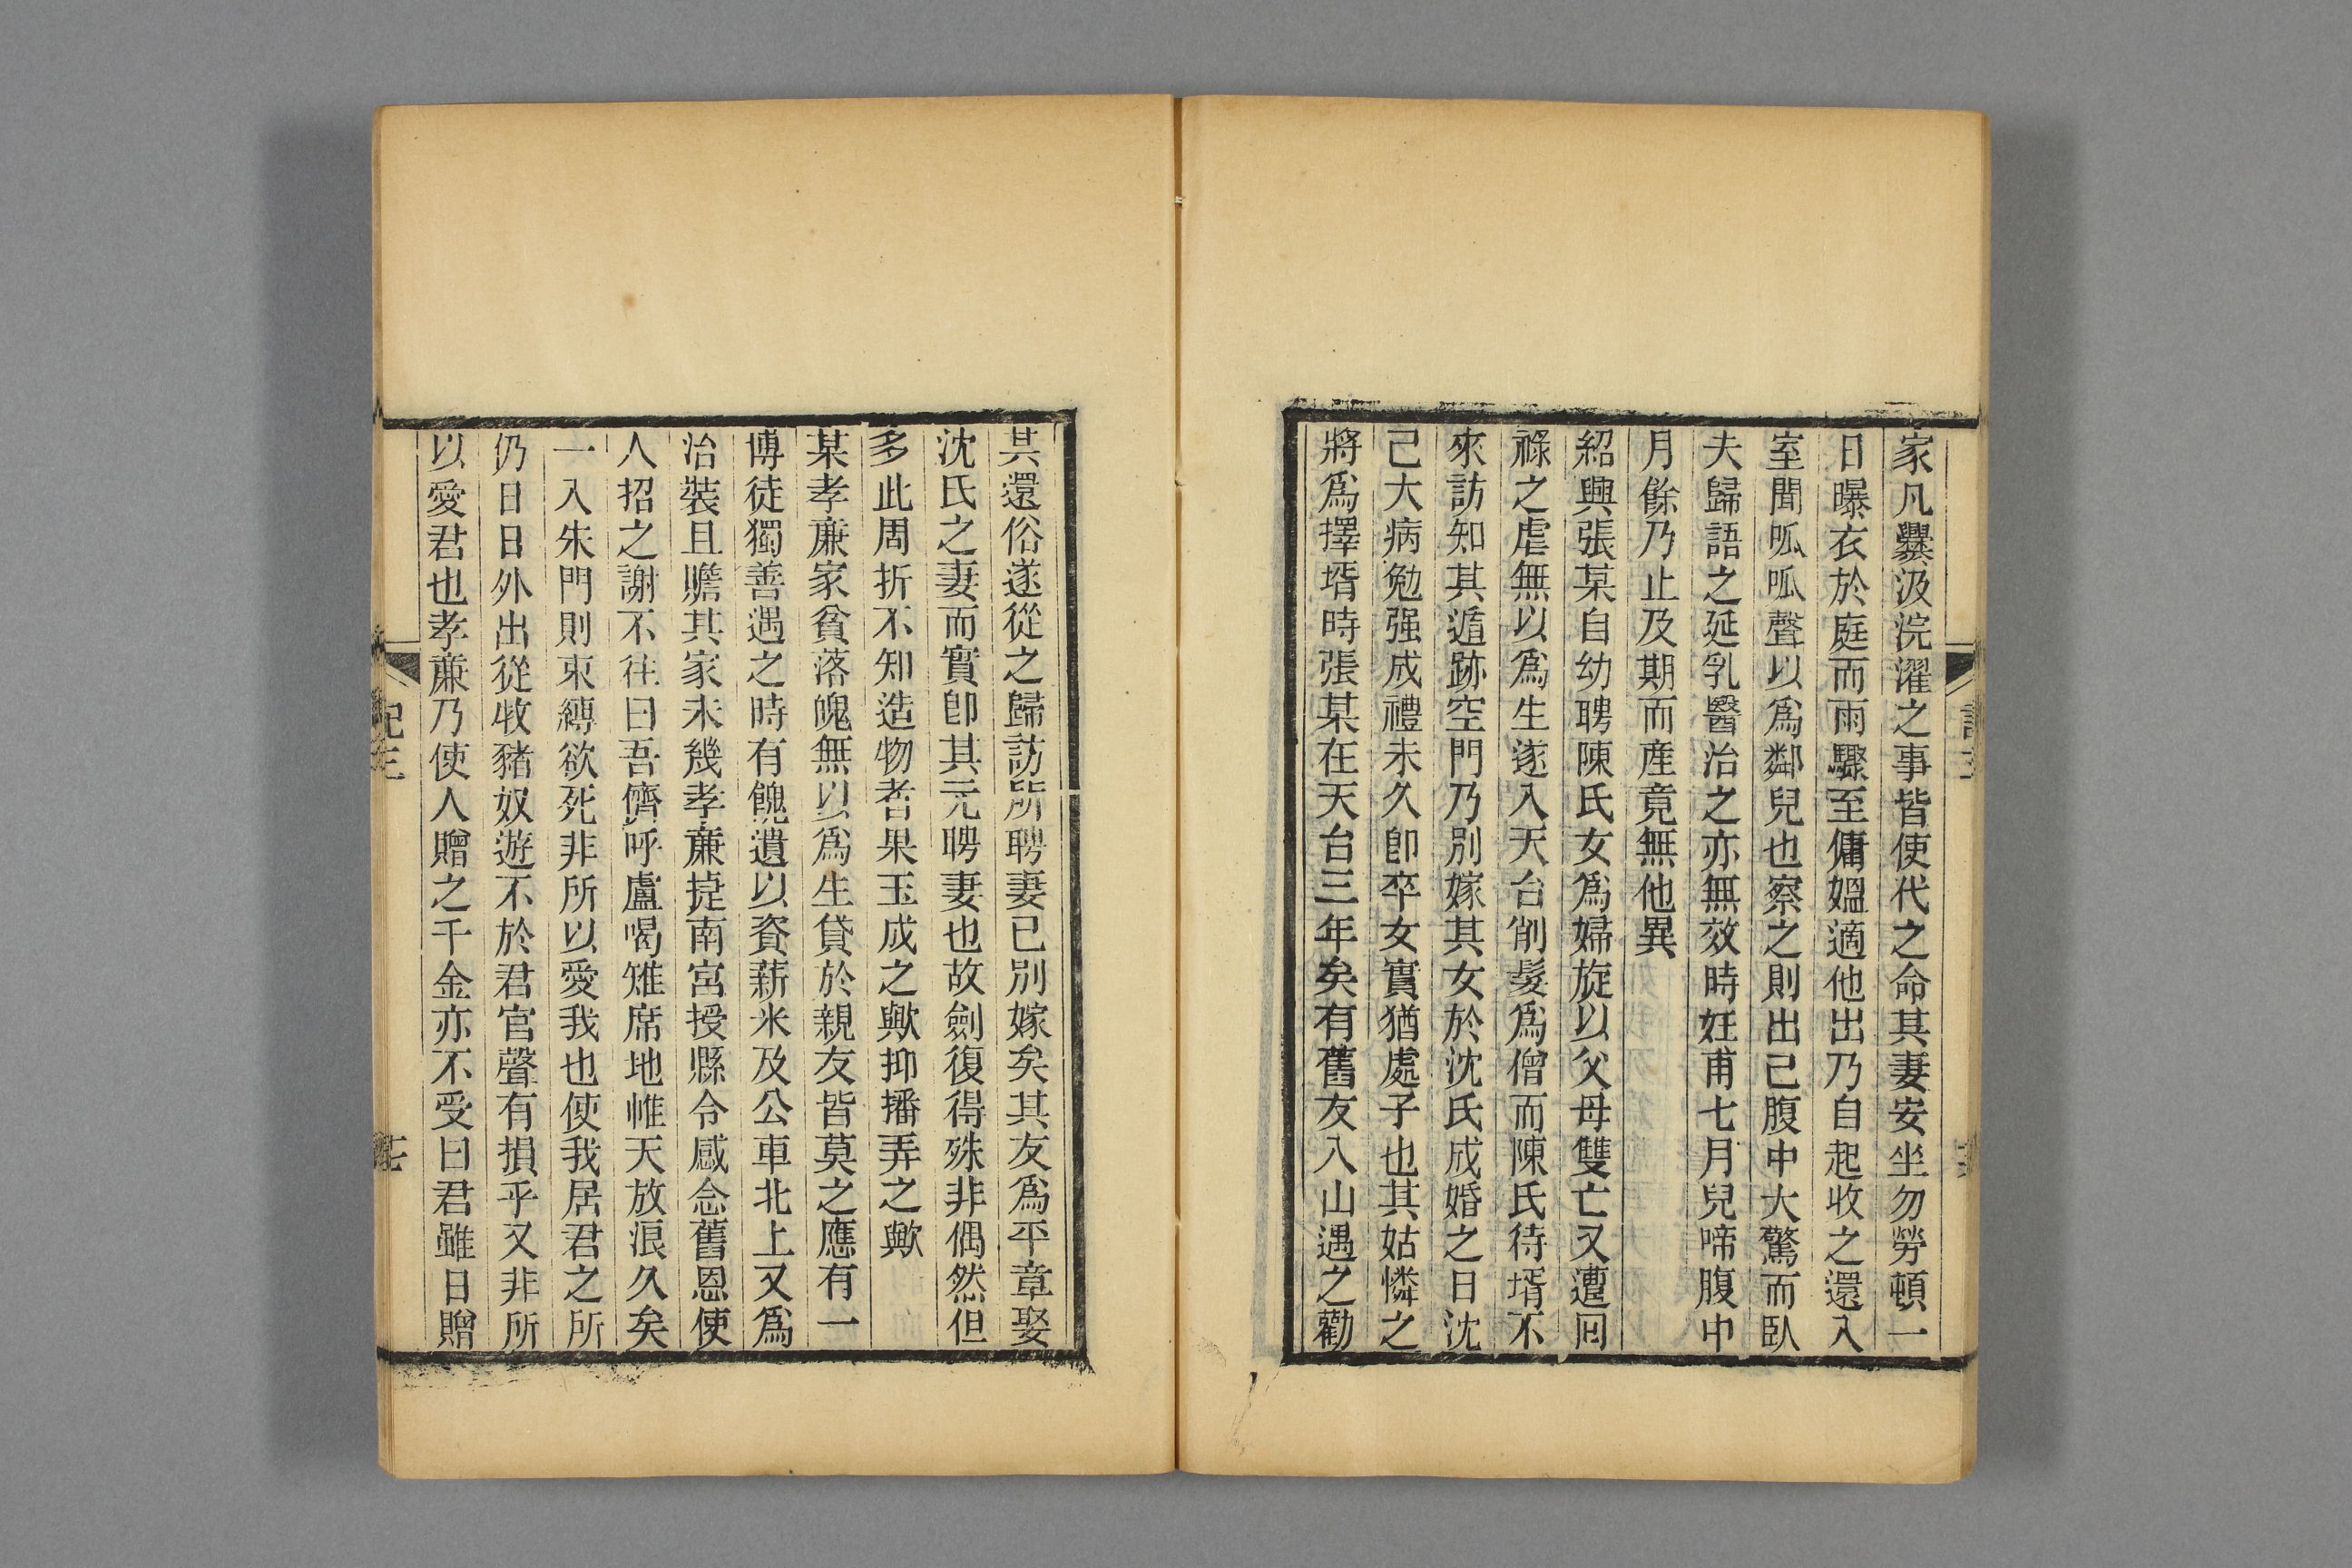 家凡爨汲浣濯之事皆使代之命其妻安坐勿勞頓一
日曝衣於庭而雨驟至傭媼適他出乃自起收之還入
室聞呱呱聲以爲鄰兒也察之則出己腹中大驚而臥
夫歸語之延乳醫治之亦無效時妊甫七月兒啼腹中
月餘乃止及期而産竟無他異
紹興張某自幼聘陳氏女爲婦旋以父母雙亡又遭回
祿之虐無以爲生遂入天台削髮爲僧而陳氏待壻不
來訪知其遁跡空門乃別嫁其女於沈氏成婚之日沈
己大病勉强成禮未久卽卒女實猶處子也其姑憐之
將爲擇壻時張某在天台三年矣有舊友入山遇之勸
其還俗遂從之歸訪所聘妻已別嫁矣其友爲平章娶
沈氏之妻而實卽其元聘妻也故劍復得殊非偶然但
多此周折不知造物者果玉成之歟抑播弄之歟
某孝廉家貧落魄無以爲生貸於親友皆莫之應有一
博徒獨善遇之時有餽遺以資薪米及公車北上又爲
治裝且贍其家未幾孝廉捷南宮授縣令感念舊恩使
人招之謝不往曰吾儕呼盧喝雉席地帷天放浪久矣
一入朱門則束縛欲死非所以愛我也使我居君之所
仍日日外出從牧豬奴遊不於君官聲有損乎又非所
以愛君也孝廉乃使人贈之千金亦不受曰君雖日贈